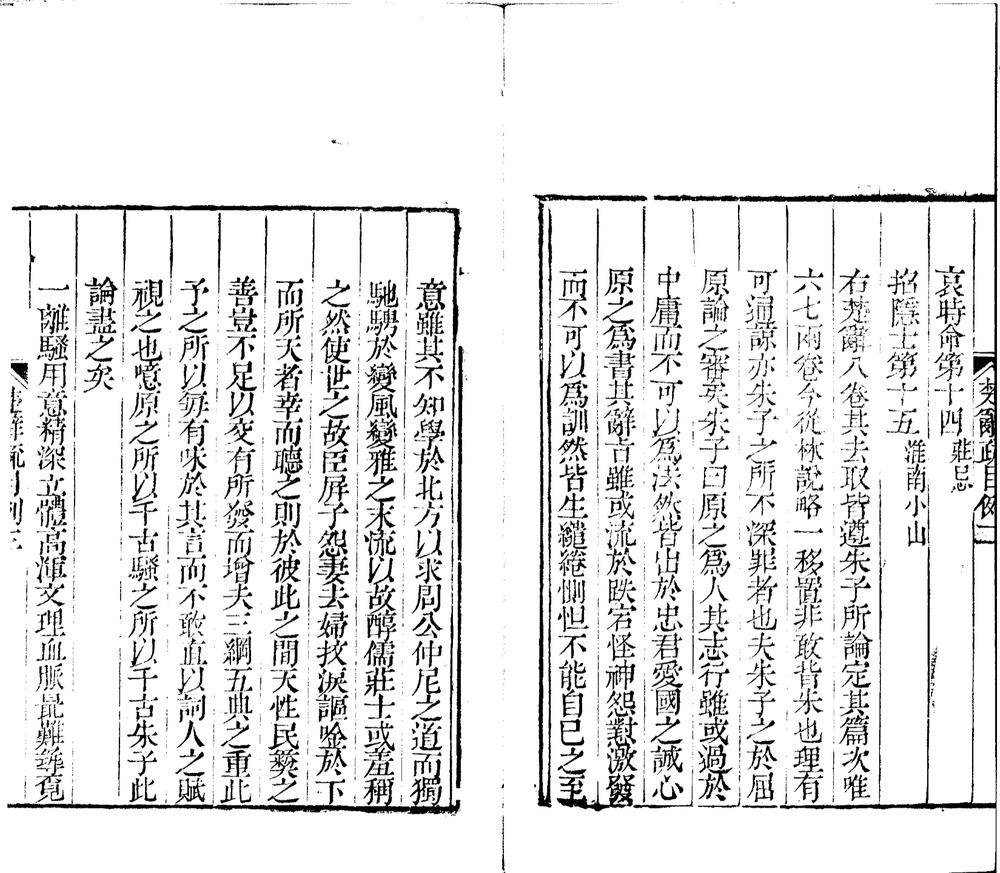 哀時命第十四 莊忌
招隱士第十五 淮南小山
右楚辭八卷其去取皆遵朱子所論定其篇次唯
六七兩卷今從林說略一移置非敢背朱也理有
可通諒亦朱子之所不深罪者也夫朱子之於屈
原論之審矣朱子曰原之爲人其志行雖或過於
中庸而不可以爲法然皆出於忠君愛國之誠心
原之爲書其辭旨雖或流於跌宕怪神怨懟激發
而不可以爲訓然皆生繾綣惻怛不能自已之至
意雖其不知學於北方以求周公仲尼之道而獨
馳騁於變風變雅之末流以故醇儒莊士或羞稱
之然使世之故臣屏子怨妻去婦抆淚謳唫於下
而所天者幸而聽之則於彼此之間天性民彝之
善豈不足以交有所發而增夫三綱五典之重此
予之所以每有味於其言而不敢直以詞人之賦
視之也噫原之所以千古騷之所以千古朱子此
論盡之矣
一離騷用意精深立體高渾文理血脈最難尋覓